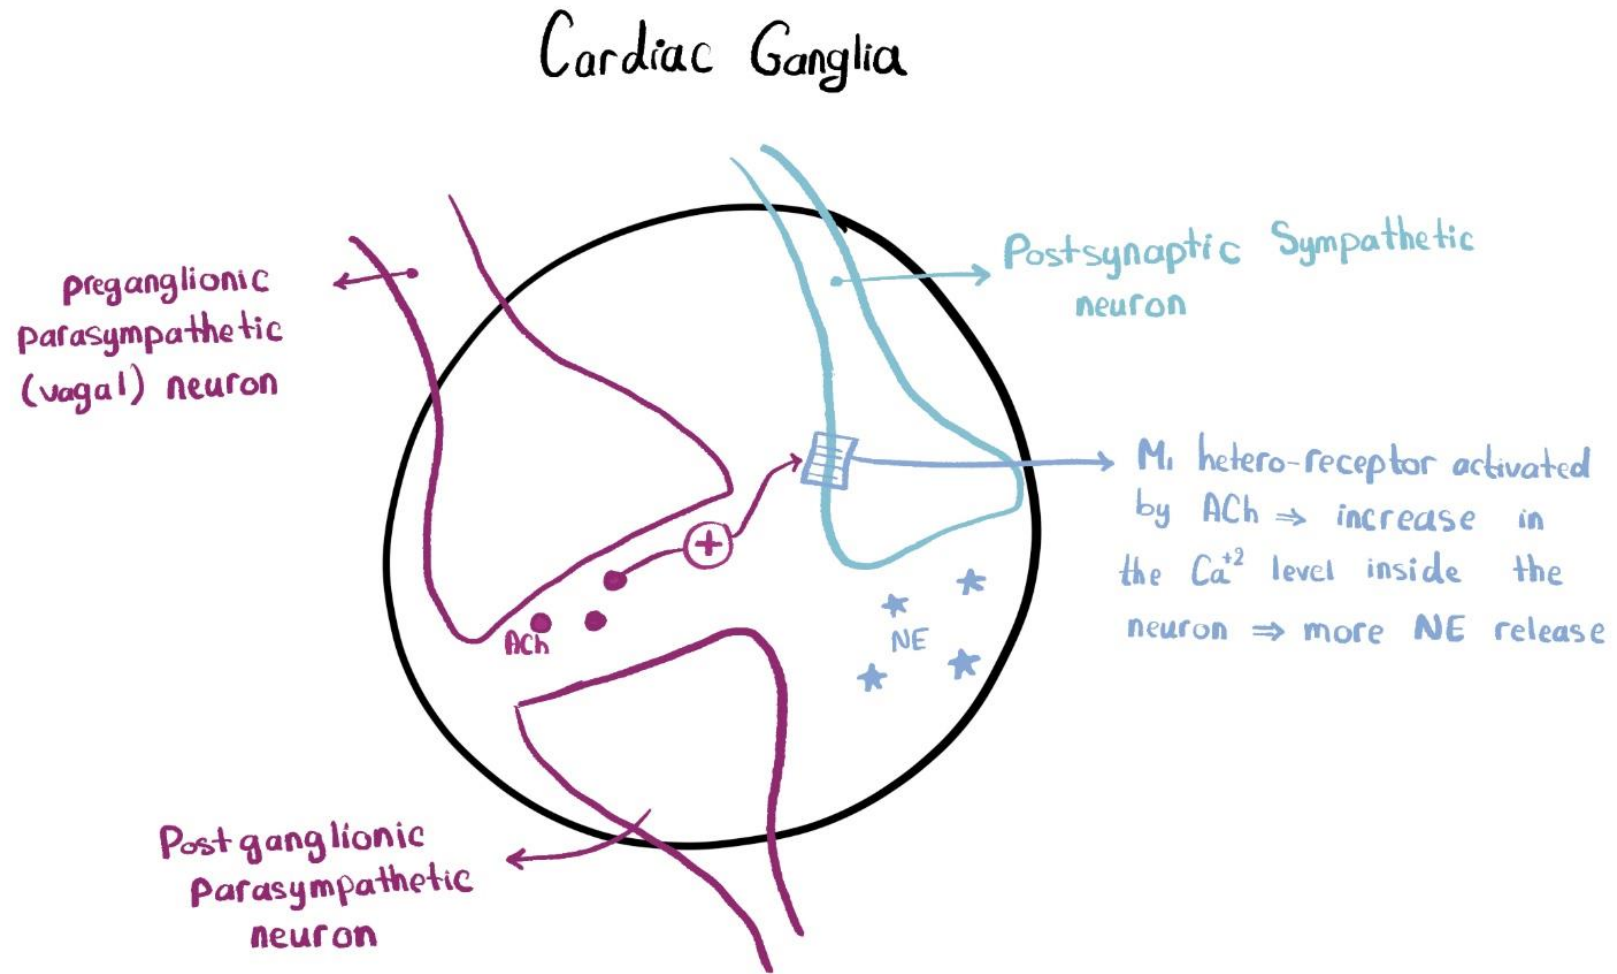 Cardiac Ganglia
preganglionic
parasympathetic
(vagal) neuron
Postsynaptic Sympathetic
neuron
M₁ hetero-receptor activated
by ACh ⇒ increase in
the Ca⁺² level inside the
neuron ⇒ more NE release
+
ACh
NE
Postganglionic
Parasympathetic
neuron